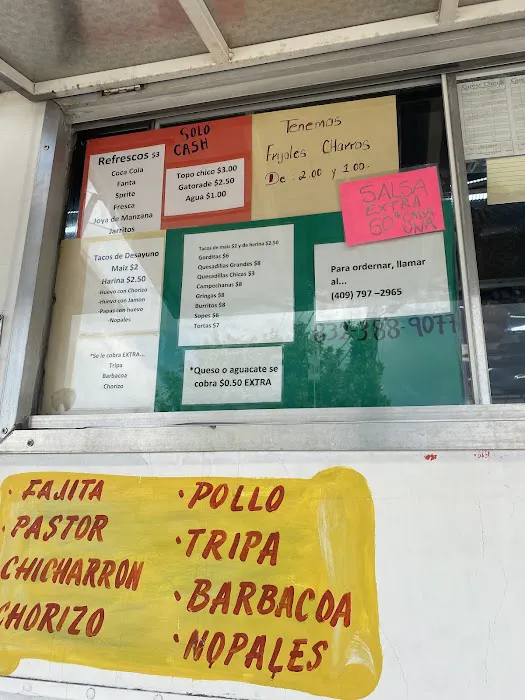 SOLO
CASH
Refrescos $3
Coca Cola
Fanta
Sprite
Fresca
Joya de Manzana
Jarritos
Topo chico $3.00
Gatorade $2.50
Agua $1.00
Tenemos
Frijoles Charros
De 2.00 y 1.00.
SALSA
EXTRA
60¢ CADA
UNA
Tacos de Desayuno
Maiz $2
Harina $2.50
-Huevo con Chorizo
-Huevo con Jamon
-Papas con huevo
-Nopales
*Se le cobra EXTRA...
Tripa
Barbacoa
Chorizo
Tacos de maiz $2 y de harina $2.50
Gorditas $6
Quesadillas Grandes $8
Quesadillas Chicas $3
Campochanas $8
Gringas $8
Burritos $8
Sopes $6
Tortas $7
*Queso o aguacate se
cobra $0.50 EXTRA
Para ordernar, llamar
al...
(409) 797 –2965
832-388-9077
· FAJITA
· PASTOR
CHICHARRON
CHORIZO
· POLLO
· TRIPA
· BARBACOA
· NOPALES